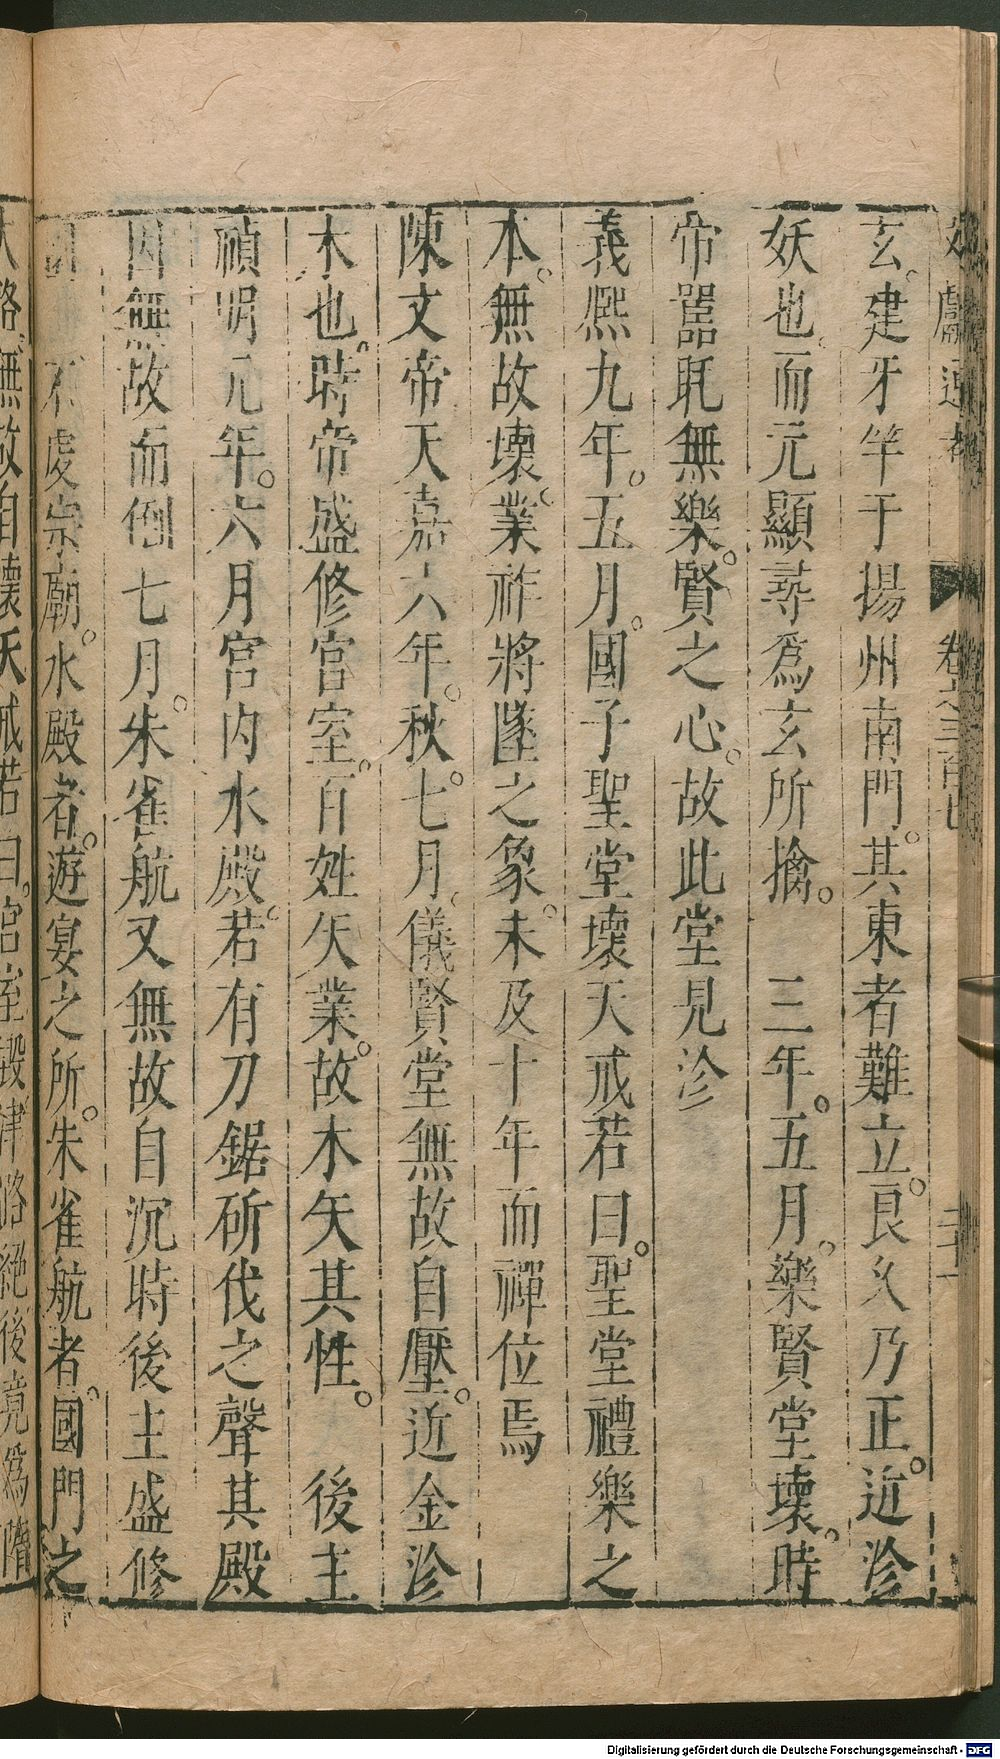 玄。建牙竿于揚州南門。其東者難立。良久乃正。近沴
妖也。而元顯尋爲玄所擒。 三年。五月。樂賢堂壞。時
帝嚚眊無樂。賢之心。故此堂見沴
義熙九年。五月。國子聖堂壞天戒若曰。聖堂禮樂之
本。無故壞。業祚將墬之象。未及十年而禪位焉
陳文帝天嘉六年。秋。七月。儀賢堂無故自壓。近金沴
木也。時帝盛修宮室。百姓失業。故木失其性。 後主
禎明元年。六月宮內水殿。若有刀鋸斫伐之聲其殿
因無故而倒七月。朱雀航又無故自沉時後主盛修
不虔宗廟。水殿者。遊宴之所。朱雀航者。國門之
大路。無故自壞天戒若曰。宮室毀津路絕後竟爲隋
卷之三百七
Digitalisierung gefördert durch die Deutsche Forschungsgemeinschaft - DFG